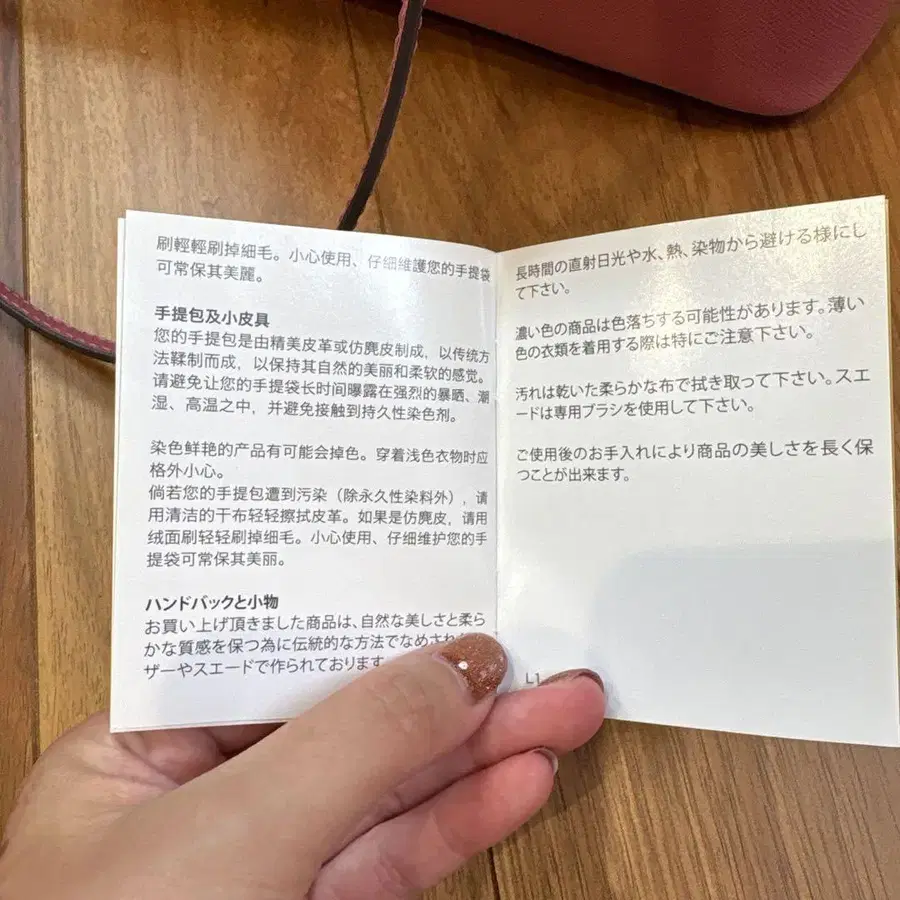 刷輕輕刷掉細毛。小心使用、仔細維護您的手提袋
可常保其美麗。
手提包及小皮具
您的手提包是由精美皮革或仿麂皮制成，以传统方
法鞣制而成，以保持其自然的美丽和柔软的感觉。
请避免让您的手提袋长时间曝露在强烈的暴晒、潮
湿、高温之中，并避免接触到持久性染色剂。
染色鲜艳的产品有可能会掉色。穿着浅色衣物时应
格外小心。
倘若您的手提包遭到污染（除永久性染料外），请
用清洁的干布轻轻擦拭皮革。如果是仿麂皮，请用
绒面刷轻轻刷掉细毛。小心使用、仔细维护您的手
提袋可常保其美丽。
ハンドバックと小物
お買い上げ頂きました商品は、自然な美しさと柔ら
かな質感を保つ為に伝統的な方法でなめされ
ザーやスエードで作られております
長時間の直射日光や水、熱、染物から避ける様にし
て下さい。
濃い色の商品は色落ちする可能性があります。薄い
色の衣類を着用する際は特にご注意下さい。
汚れは乾いた柔らかな布で拭き取って下さい。スエ
ードは専用ブラシを使用して下さい。
ご使用後のお手入れにより商品の美しさを長く保
つことが出来ます。
L1